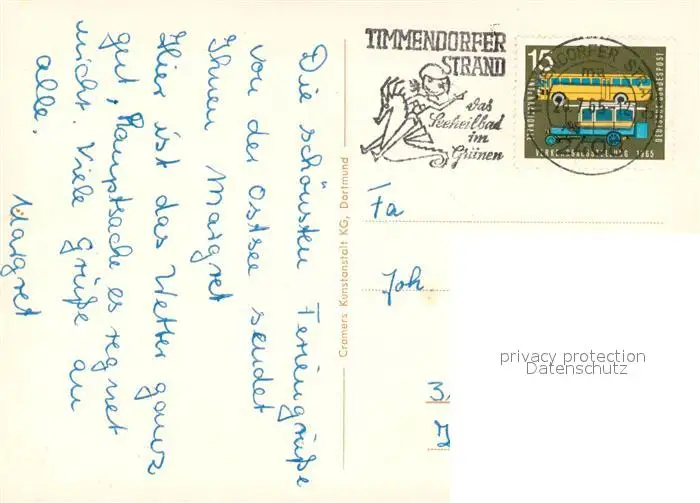 Die schönsten Feriengrüße
von der Ostsee sendet
Ihnen Margret
Hier ist das Wetter ganz
gut, Hauptsache es regnet
nicht. Viele Grüße an
alle.
Margret
Cramers Kunstanstalt KG, Dortmund
TIMMENDORFER
STRAND
das
Seeheilbad
im
Grünen
15
DEUTSCHE BUNDESPOST
1965
Fa
Joh
privacy protection
Datenschutz